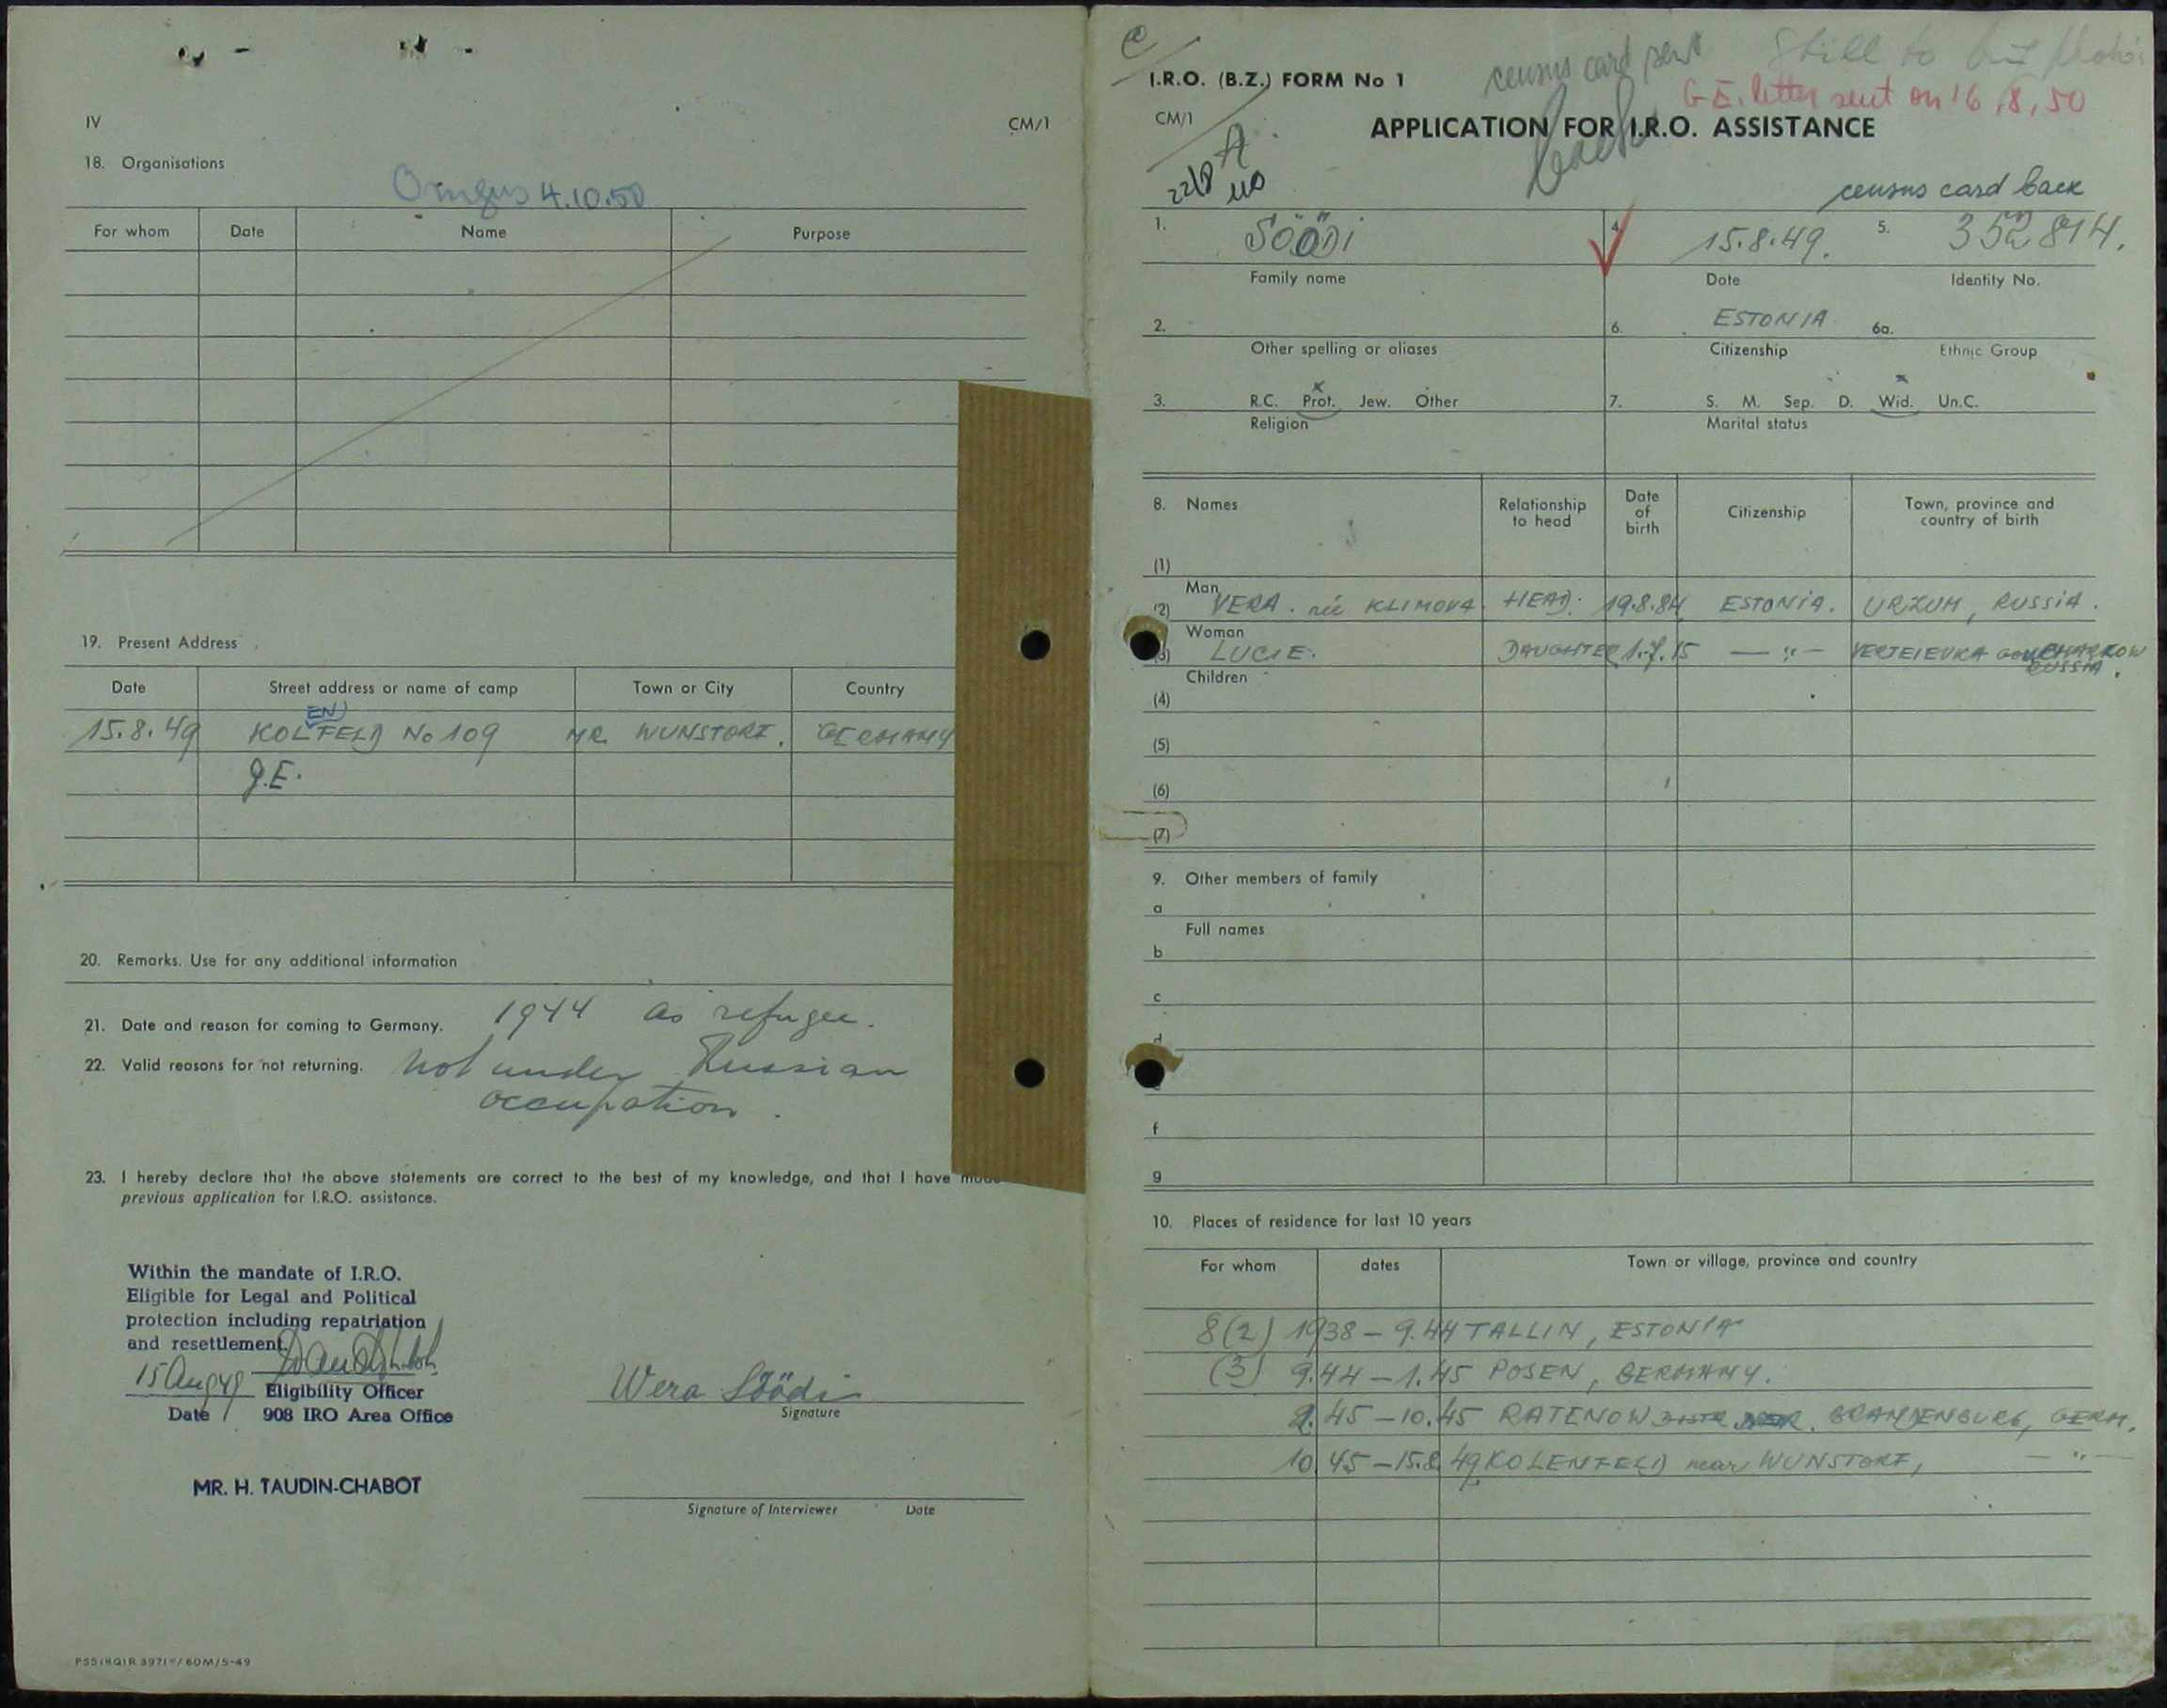 IV
CM/1
18. Organisations
4.10.50
For whom Date Name Purpose
19. Present Address
Date Street address or name of camp Town or City Country
EN
15.8.49 KOLFELD No 109 NR. WUNSTORF. GERMANY
G.E.
20. Remarks. Use for any additional information
21. Date and reason for coming to Germany. 1944 as refugee.
22. Valid reasons for not returning. Not under Russian
occupation.
23. I hereby declare that the above statements are correct to the best of my knowledge, and that I have made
previous application for I.R.O. assistance.
Within the mandate of I.R.O.
Eligible for Legal and Political
protection including repatriation
and resettlement.
15 Aug 49 Eligibility Officer
Date 908 IRO Area Office
Wera Söödi
Signature
MR. H. TAUDIN-CHABOT
Signature of Interviewer Date
C
I.R.O. (B.Z.) FORM No 1
census card sent Still to
G.E. letter sent on 16.8.50
CM/1
APPLICATION FOR I.R.O. ASSISTANCE
back
A
22/8
census card back
1. SÖÖDI 4. 15.8.49. 5. 352 814.
Family name Date Identity No.
2. 6. ESTONIA 6a.
Other spelling or aliases Citizenship Ethnic Group
3. R.C. Prot. Jew. Other 7. S. M. Sep. D. Wid. Un.C.
Religion Marital status
8. Names Relationship to head Date of birth Citizenship Town, province and country of birth
(1)
Man
(2) VERA. née KLIMOVA. HEAD. 19.8.84 ESTONIA. URZUM, RUSSIA.
Woman
(3) LUCIE. DAUGHTER 1.7.15 — " — VERJEIEVKA CHARKOW
RUSSIA.
Children
(4)
(5)
(6)
(7)
9. Other members of family
a
Full names
b
c
d
e
f
g
10. Places of residence for last 10 years
For whom dates Town or village, province and country
8(2) 1938 – 9.44 TALLIN, ESTONIA
(3) 9.44 – 1.45 POSEN, GERMANY.
45 – 10.45 RATENOW BRANDENBURG, GERM.
10.45 – 15.8.49 KOLENFELD near WUNSTORF, — " —